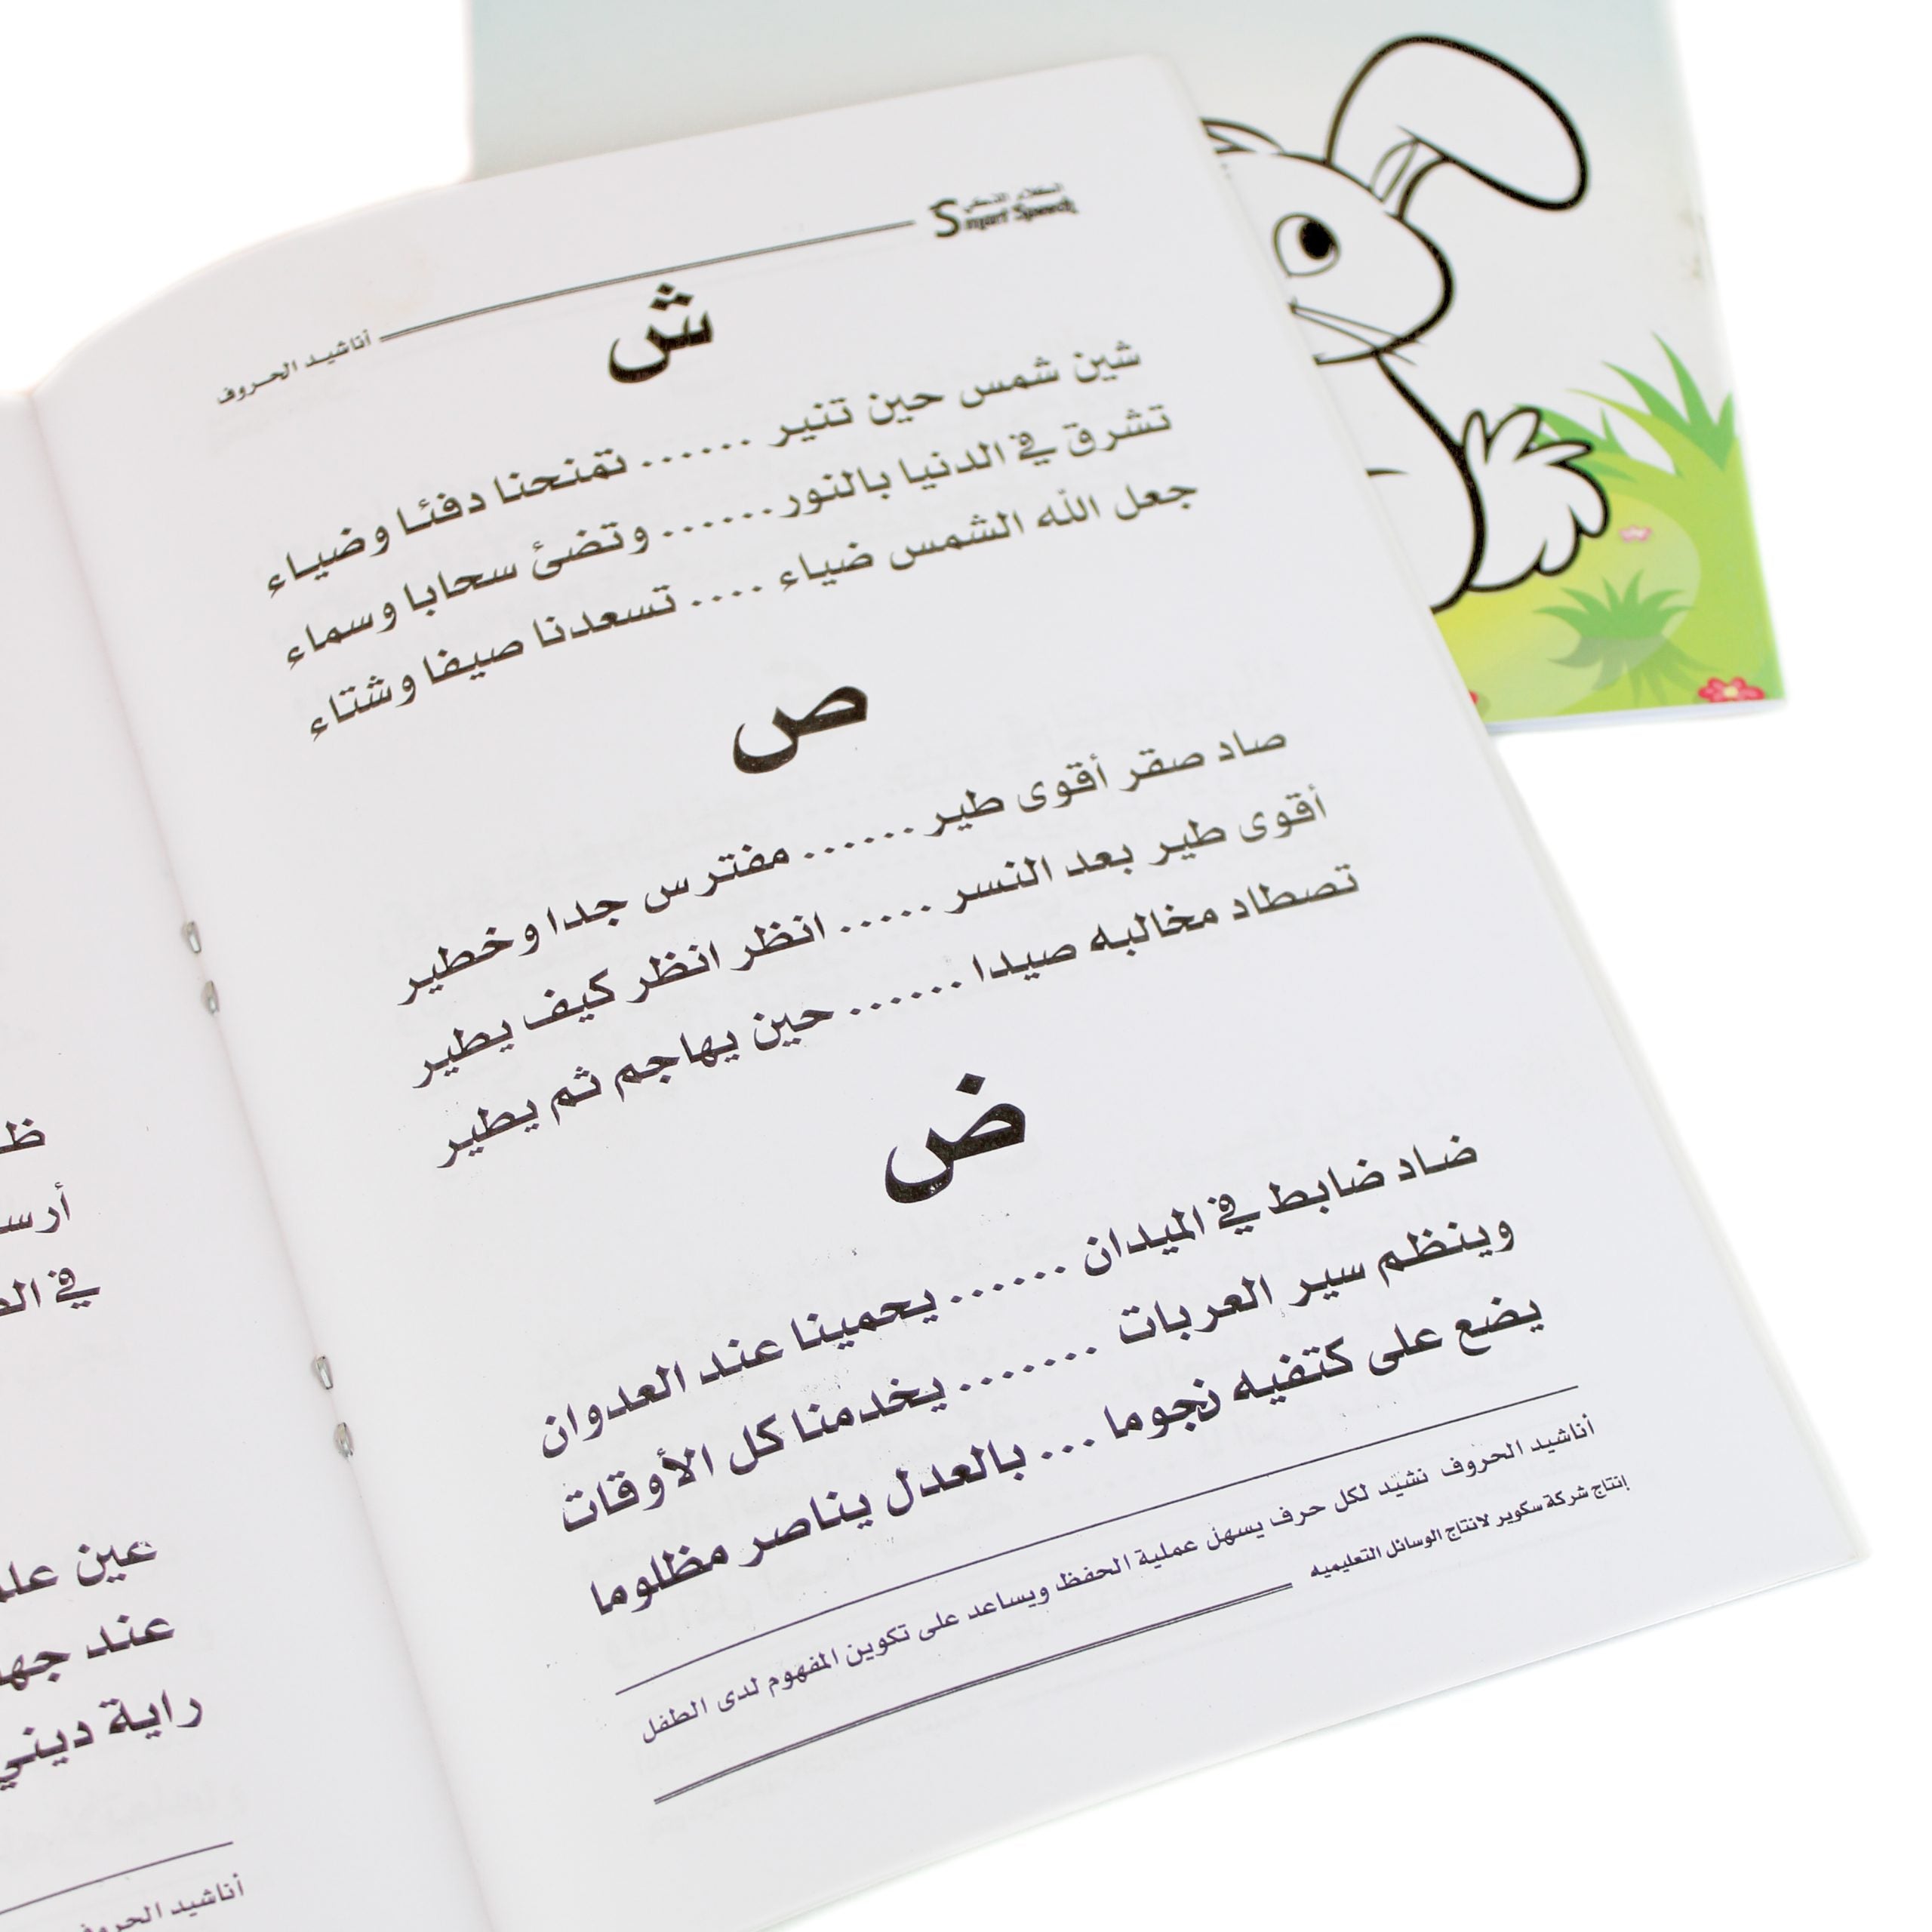 Smart Speech
أناشيد الحروف
ش
شين شمس حين تنير ...... تمنحنا دفئا وضياء
تشرق في الدنيا بالنور...... وتضئ سحابا وسماء
جعل الله الشمس ضياء .... تسعدنا صيفا وشتاء
ص
صاد صقر أقوى طير ...... مفترس جدا وخطير
أقوى طير بعد النسر ..... انظر انظر كيف يطير
تصطاد مخالبه صيدا ...... حين يهاجم ثم يطير
ض
ضاد ضابط في الميدان ...... يحمينا عند العدوان
وينظم سير العربات ....... يخدمنا كل الأوقات
يضع على كتفيه نجوما ... بالعدل يناصر مظلوما
أناشيد الحروف نشيد لكل حرف يسهل عملية الحفظ ويساعد على تكوين المفهوم لدى الطفل
إنتاج شركة سكوير لانتاج الوسائل التعليميه
في
عين
عند
راية ديني
أناشيد الحروف